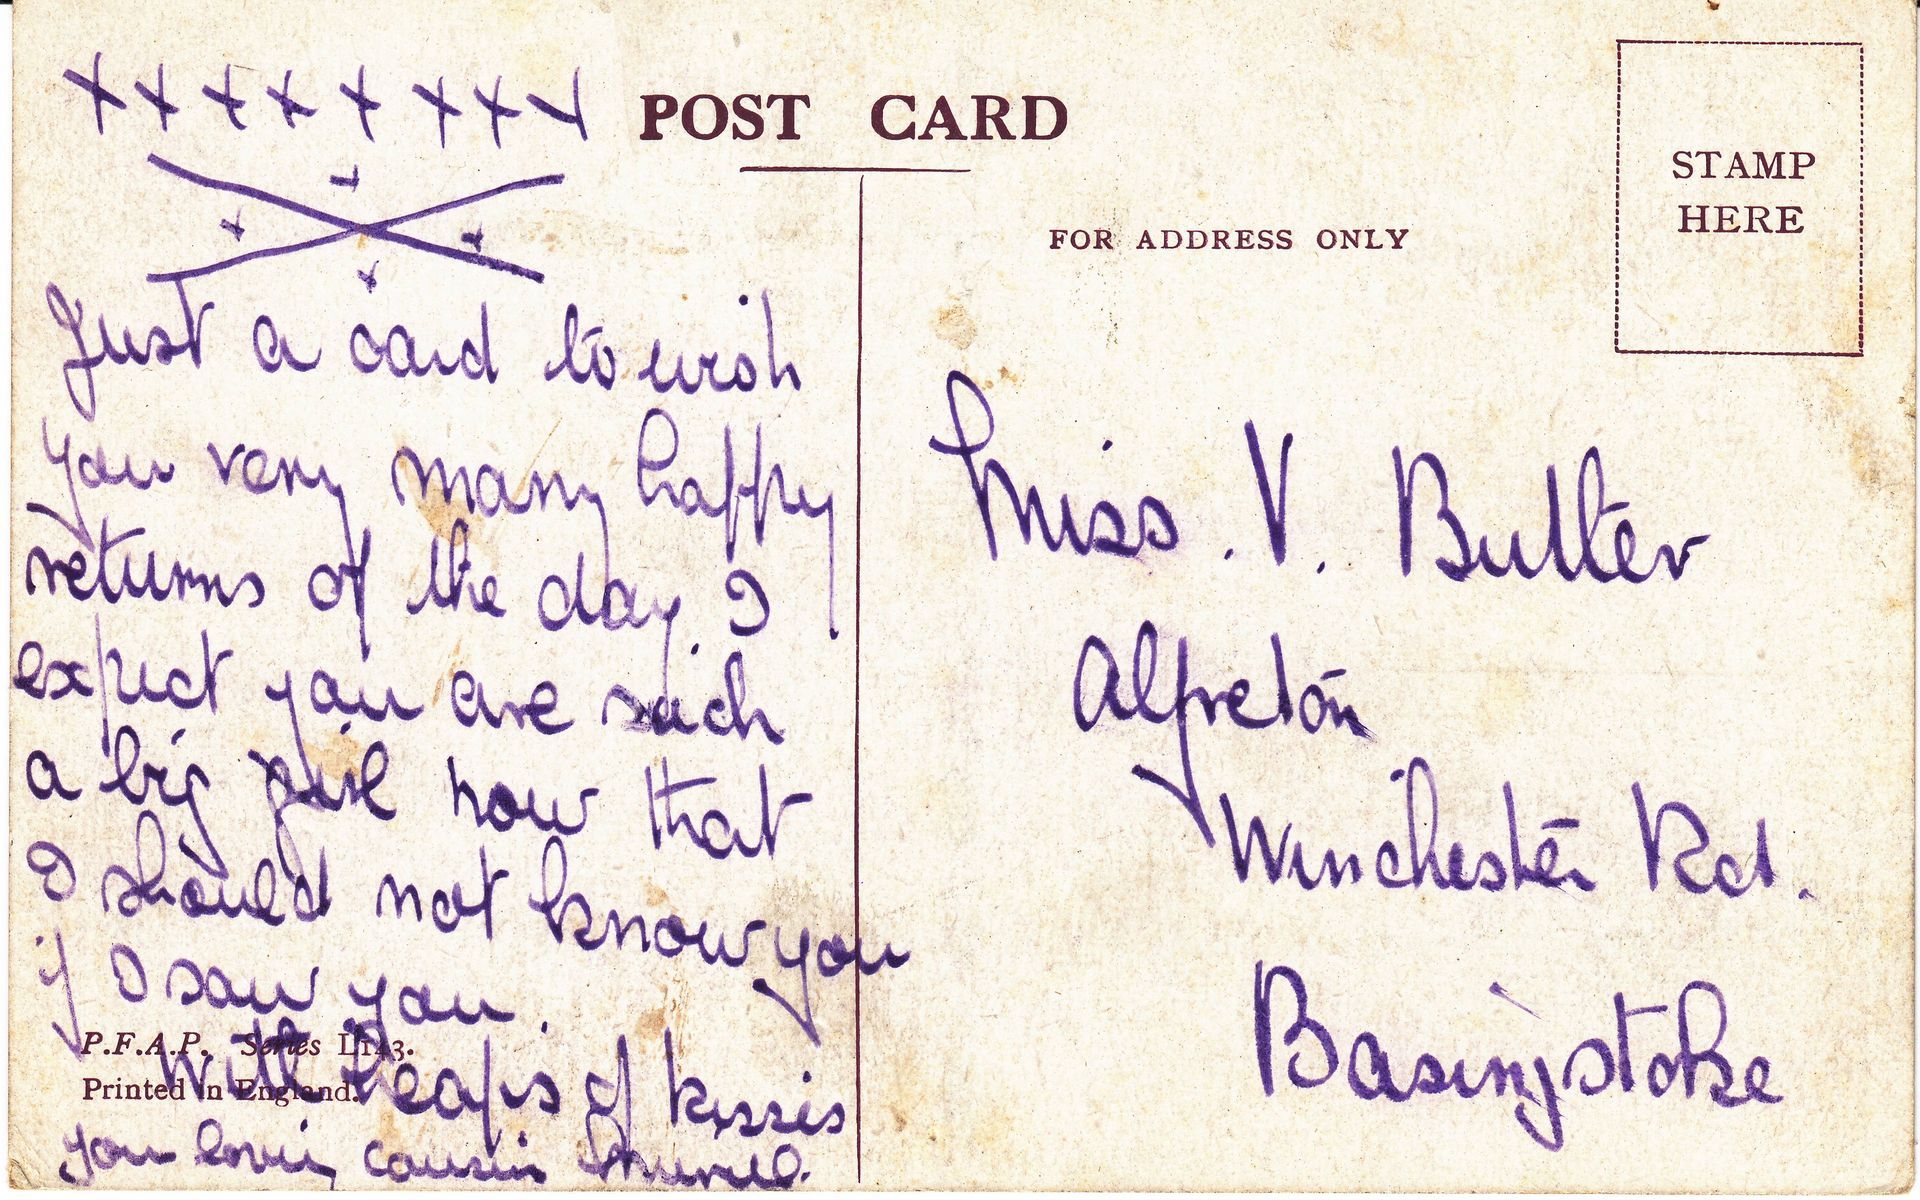 x x x x x x x x
POST CARD
STAMP
HERE
FOR ADDRESS ONLY
Just a card to wish
you very many happy
returns of the day. I
expect you are such
a big girl now that
I should not know you
if I saw you.
With heaps of kisses
your lovin cousin
P.F.A.P. Series L143.
Printed in England.
Miss. V. Butler
Alfreton
Winchester Rd.
Basingstoke